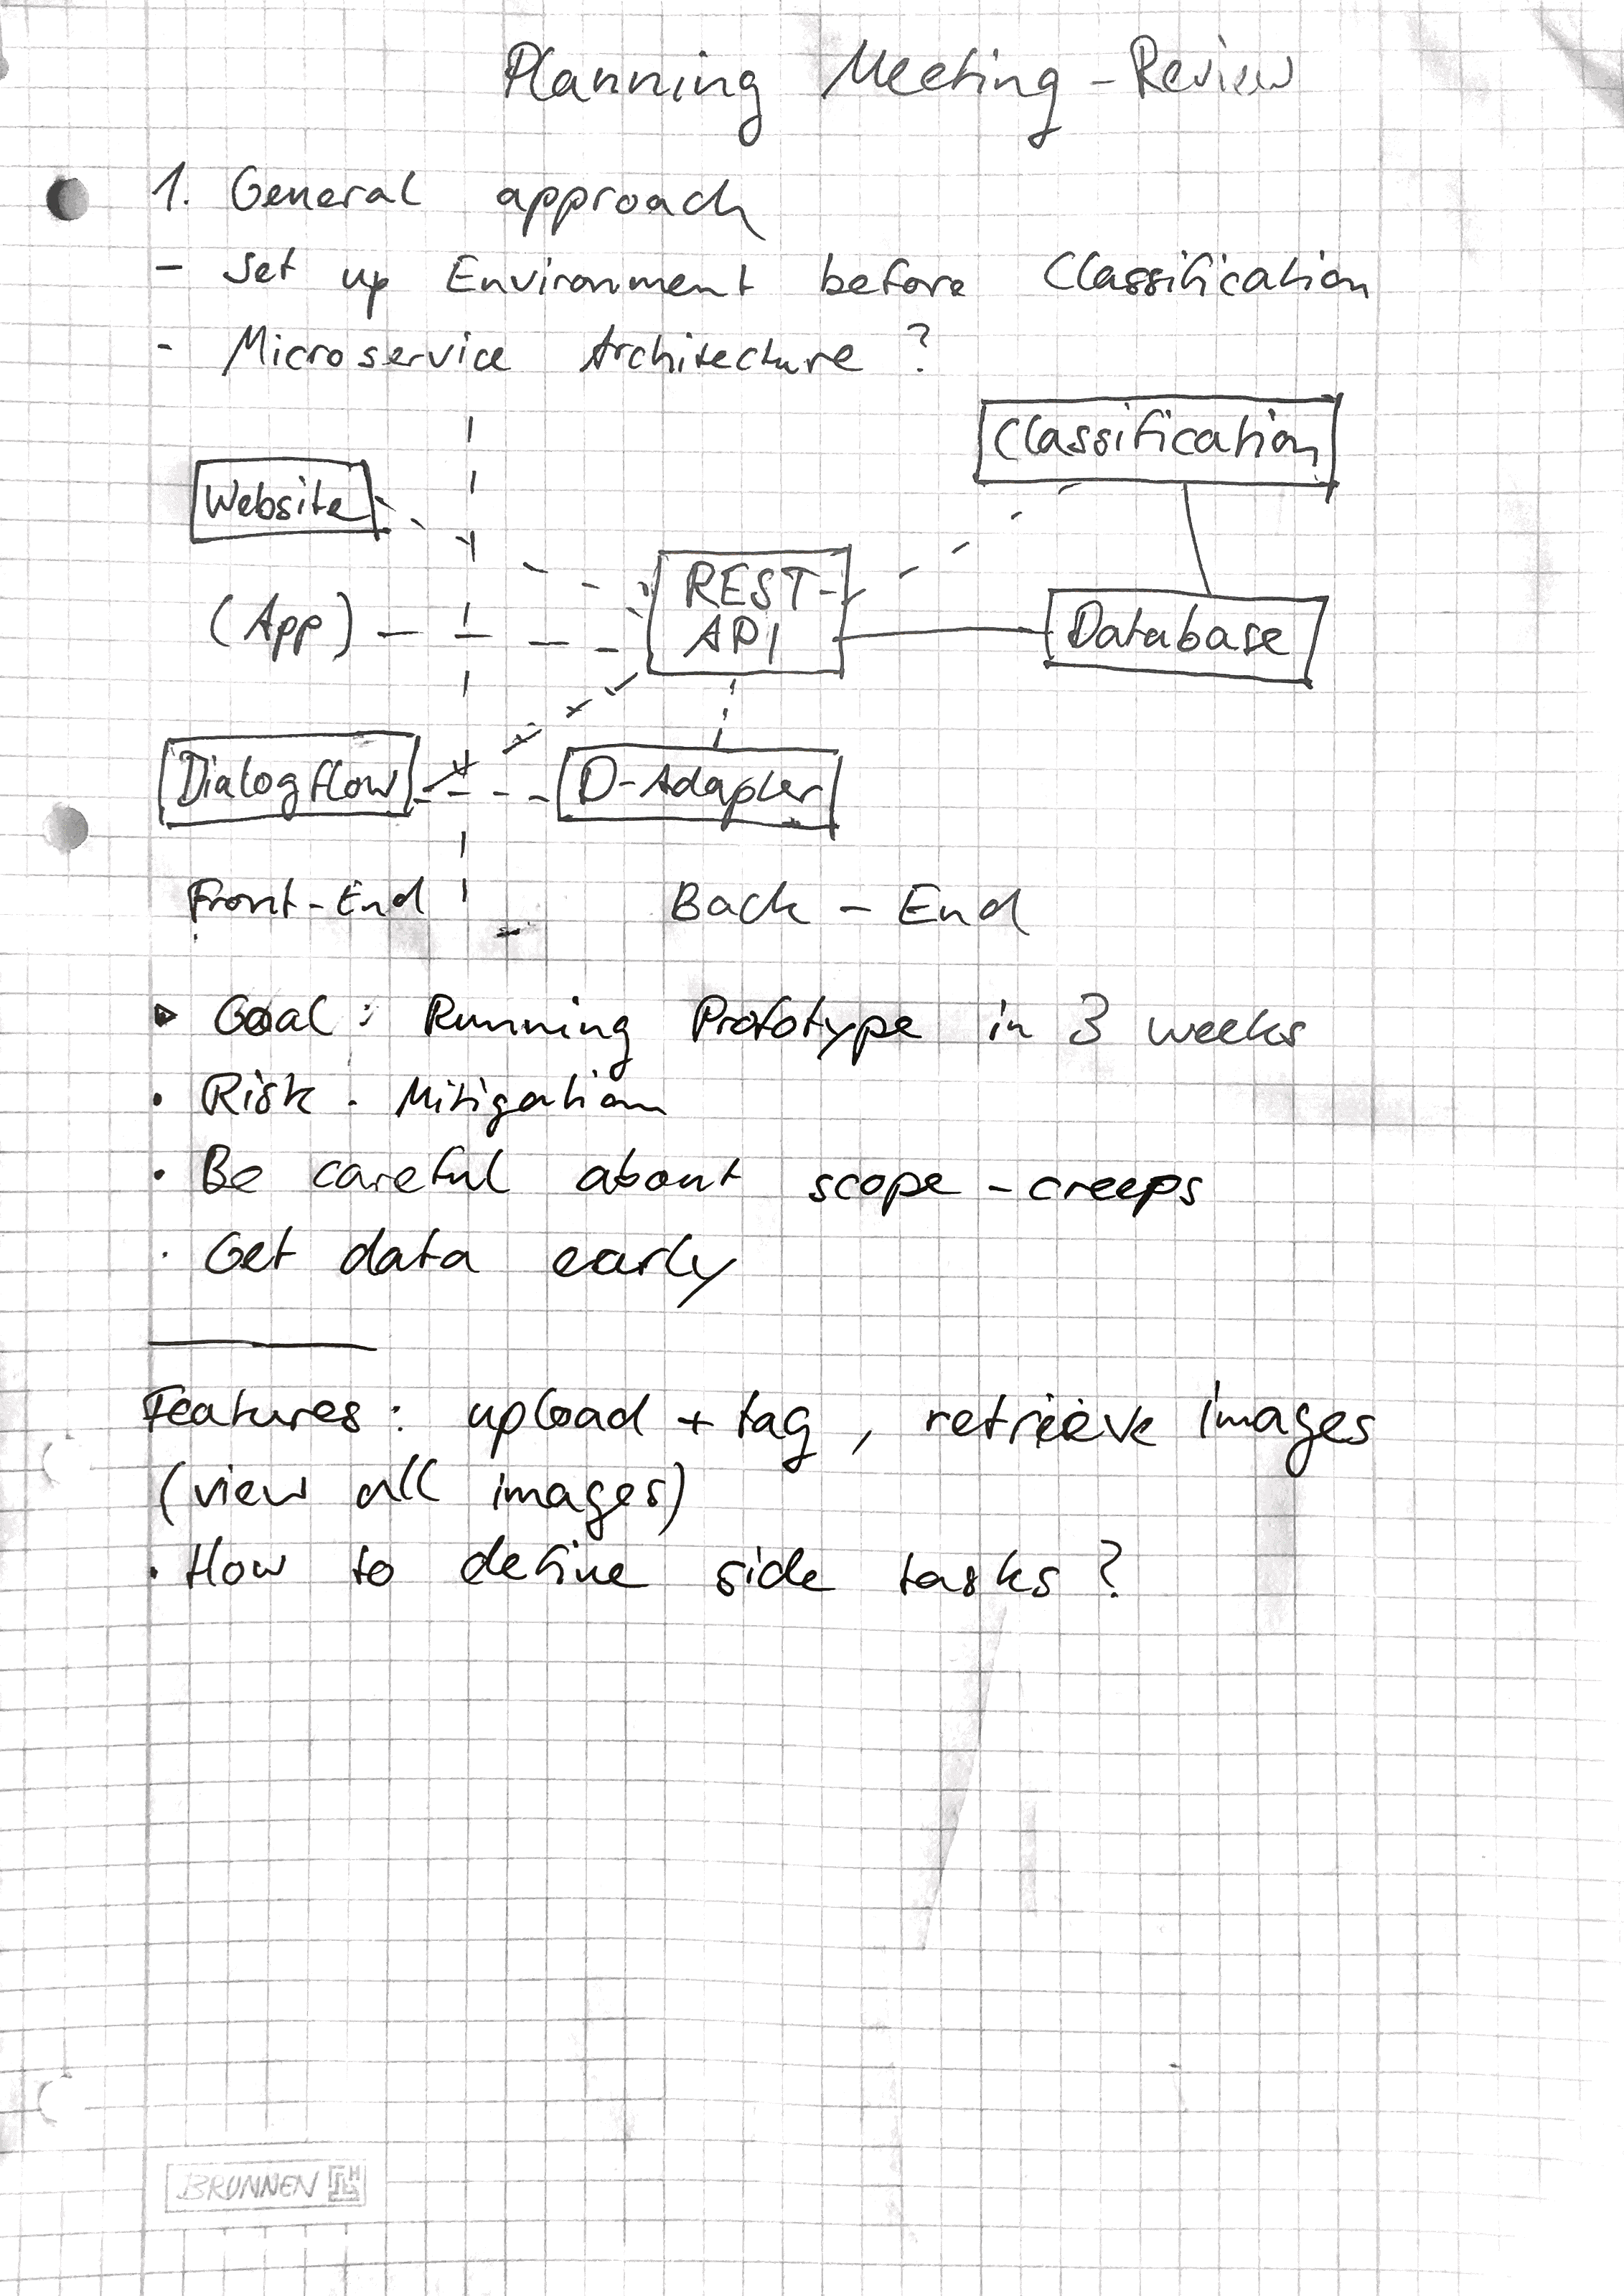 Planning Meeting - Review
1. General approach
- Set up Environment before Classification
- Microservice Architecture ?
Classification
Website
REST-
API
(App)
Database
Dialogflow
D-Adapter
Front-End
Back - End
▷ Goal : Running Prototype in 3 weeks
• Risk - Mitigation
• Be careful about scope - creeps
• Get data early
Features : upload + tag , retrieve images
(view all images)
• How to define side tasks ?
BRUNNEN